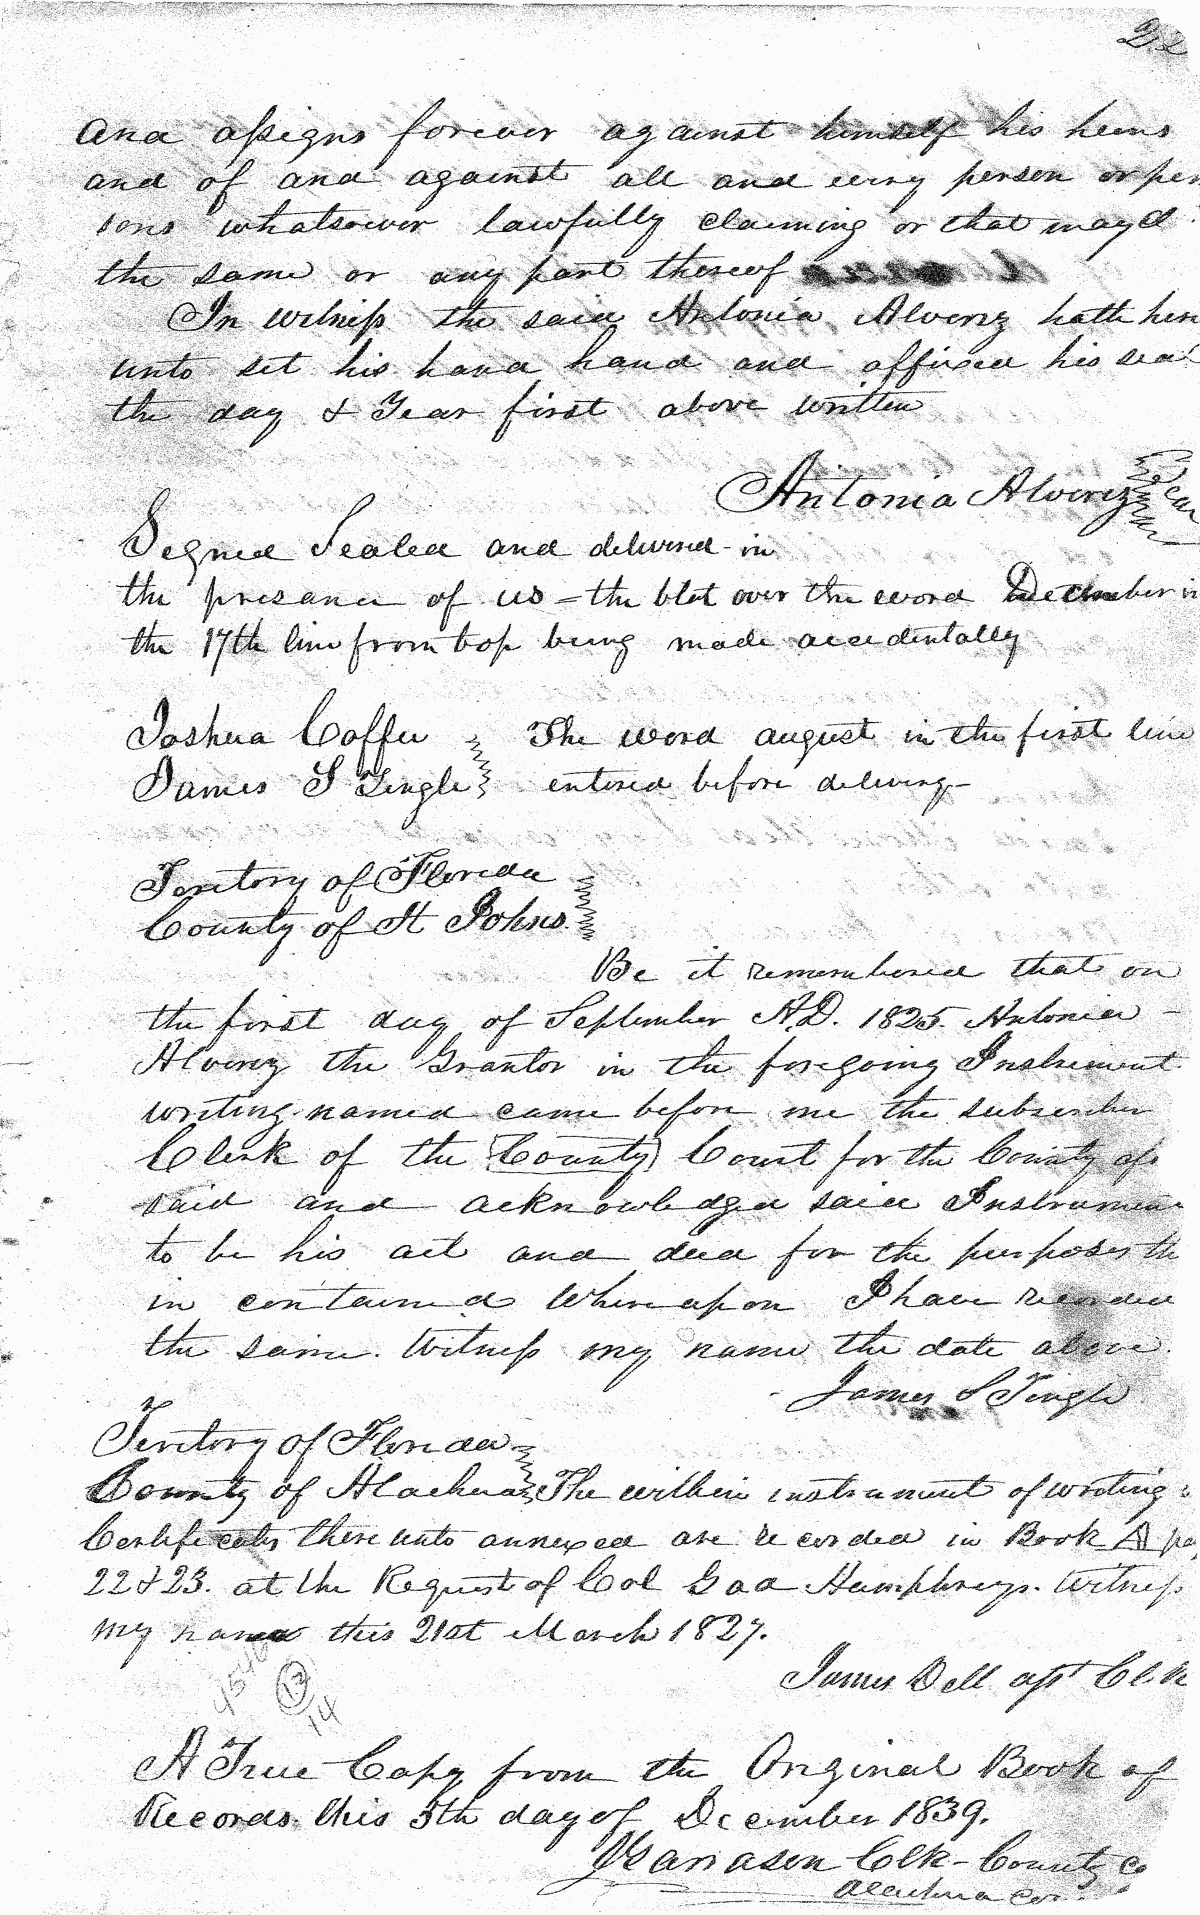 22
And assigns forever against himself his heirs
and of and against all and every person or per
sons whatsoever lawfully claiming or that may cl
the same or any part thereof
In witness the said Antonia Alverez hath here
unto set his hand hand and affixed his seal
the day & Year first above written
Antonia Alverez Seal
Segned Sealed and delivered in
the presance of us - the blot over the word December in
the 17th line from top being made accidentally
Joshua Coffee The word august in the first line
James S Tingle entered before delivery -
Teritory of Florida
County of St Johns
Be it remembered that on
the first day of September A.D. 1825. Antonia -
Alverez the Grantor in the foregoing Instrument
writing named came before me the subscriber
Clerk of the (County) Court for the County afs
said and acknowledged said Instrumen
to be his act and deed for the purposes th
in contained Whereupon I have recorded
the same. Witness my name the date above.
James S Tingle
Teritory of Florida
County of Alachua The within instrument of writing &
Certificates there unto annexed are recorded in Book A pa
22 & 23. at the Request of Col Gad Humphreys. Witness
my name this 21st March 1827.
James Dell asst Clk
13
14
A True Copy from the Original Book of
Records this 5th day of December 1839.
Clk - County Co
Alachua Co